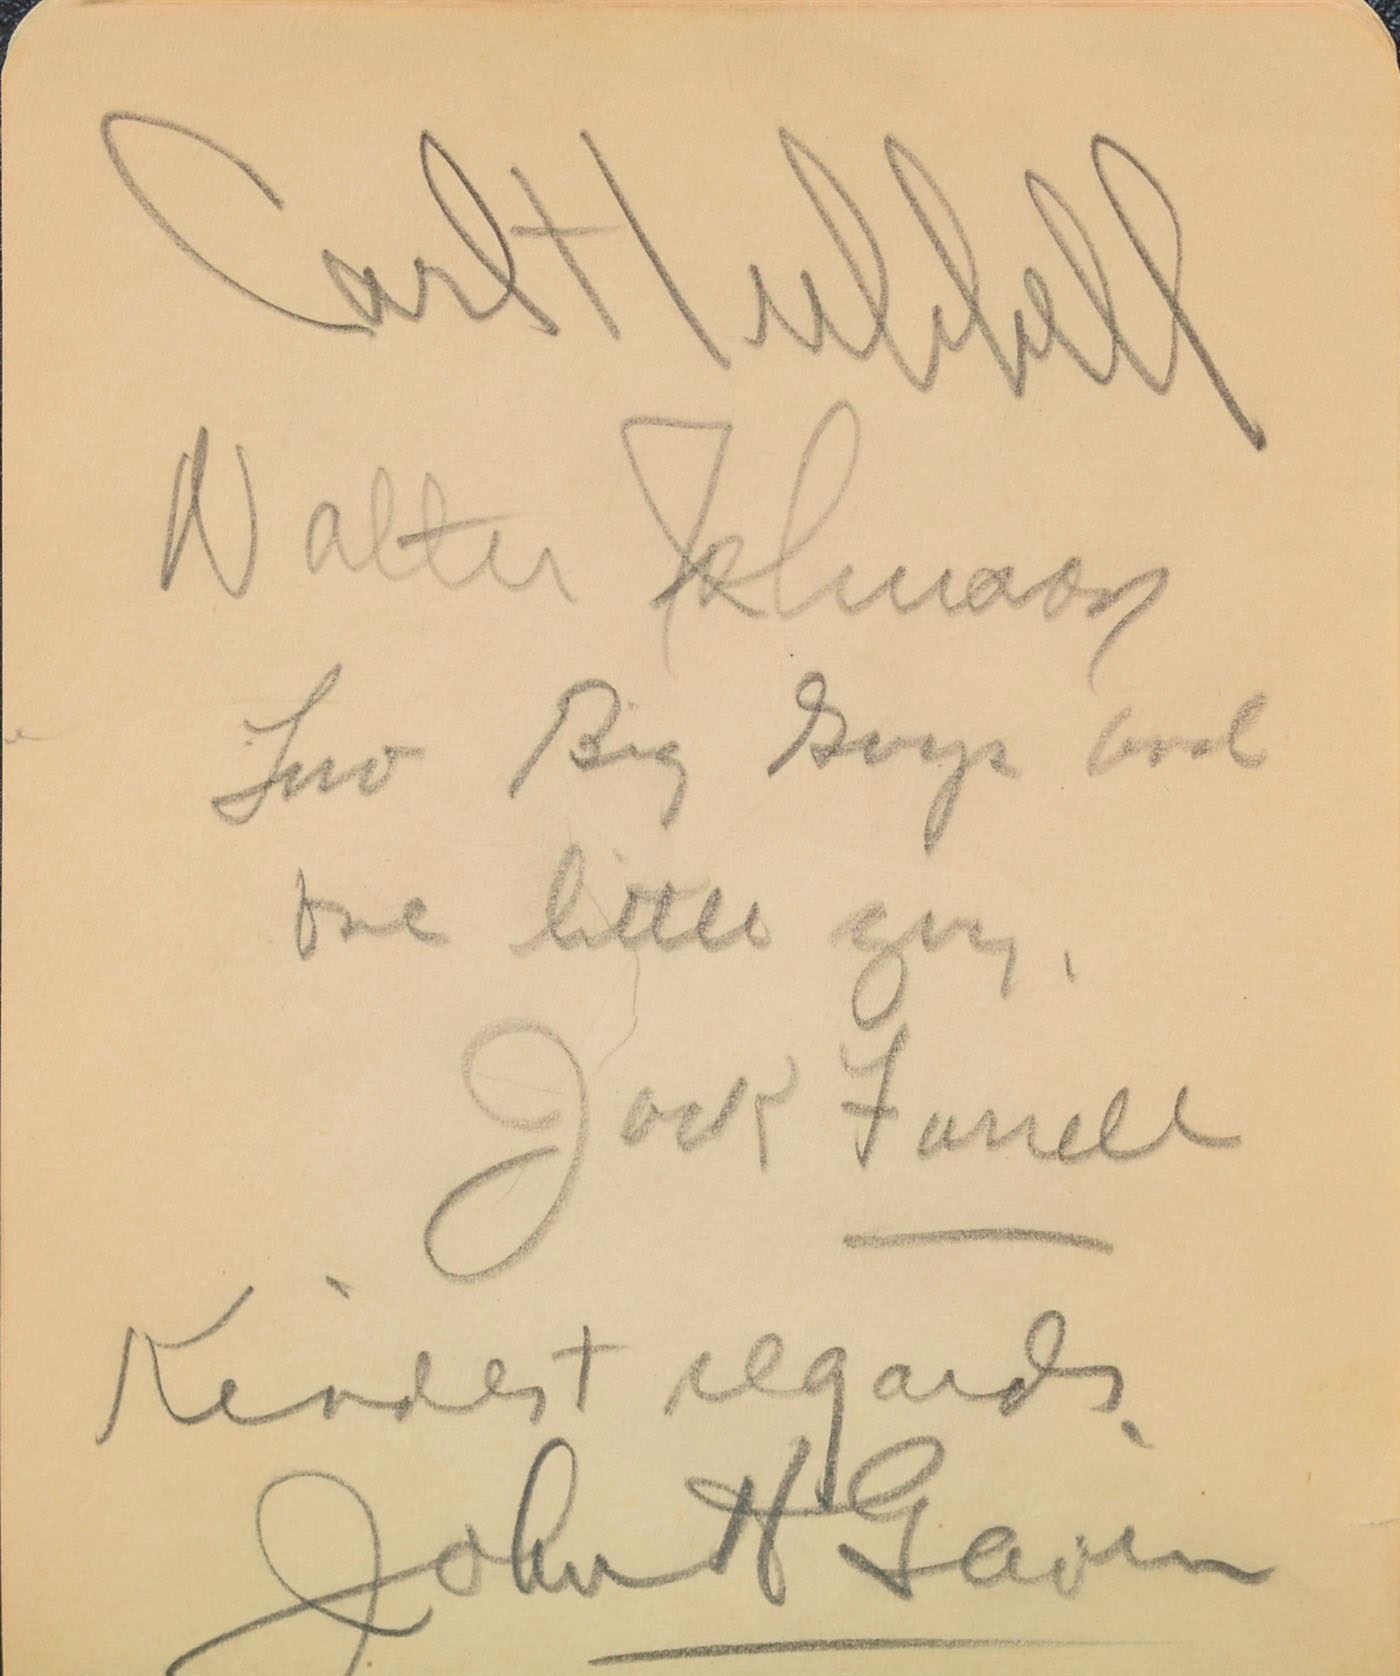 Carl Hubbell
Walter Johnson
Two Big Guys and
one little guy.
Jack Farrell
Kindest regards,
John H Gavin